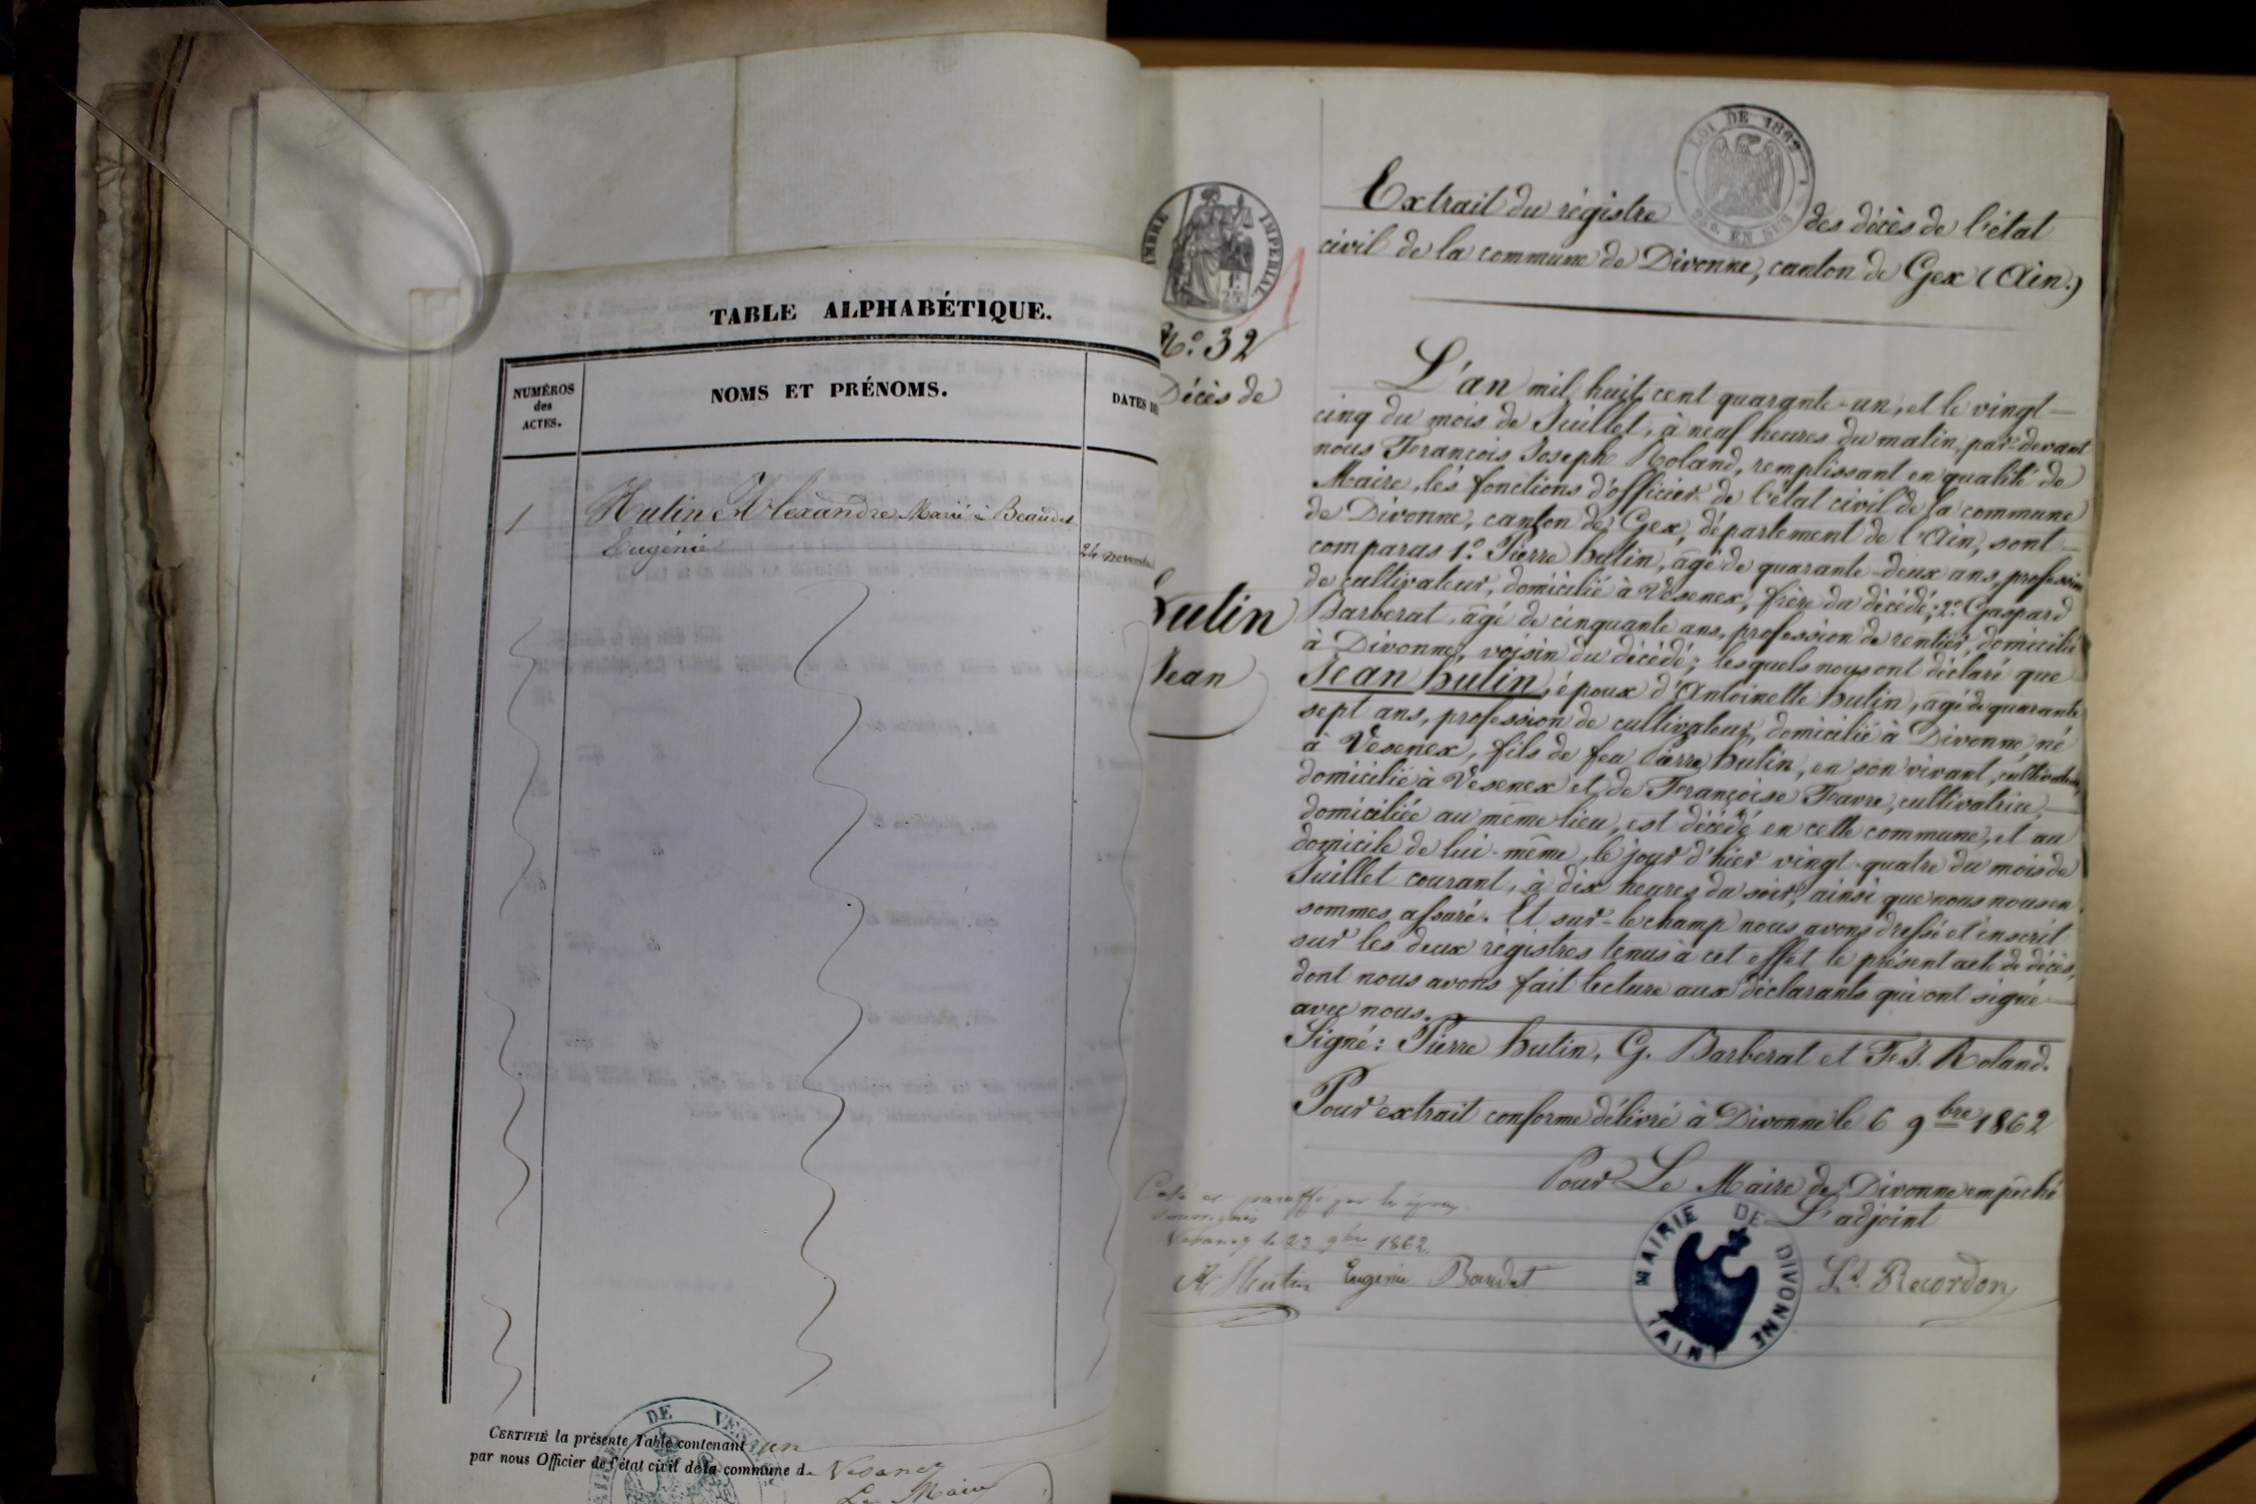 TABLE ALPHABÉTIQUE.
NUMÉROS
des
ACTES.
NOMS ET PRÉNOMS.
DATES
1
Hutin Alexandre Marié à Beaudet
Eugénie
24 novembre
DE
CERTIFIÉ la présente Table contenant un
par nous Officier de l'état civil de la commune de Vesancy
Le Maire
LOI DE 1862
EN SUS
IMPERIAL
Extrait du régistre des décès de l'état
civil de la commune de Divonne, canton de Gex (Ain.)
N.° 32
Décès de
hutin
Jean
L'an mil huit cent quarante-un, et le vingt
cinq du mois de Juillet, à neuf heures du matin, par-devant
nous François Joseph Roland, remplissant en qualité de
Maire, les fonctions d'officier de l'état civil de la commune
de Divonne, canton de Gex, département de l'Ain, sont
comparus 1.° Pierre hutin, âgé de quarante-deux ans, profession
de cultivateur, domicilié à Vesenex, frère du décédé; 2.° Gaspard
Barberat, âgé de cinquante ans, profession de rentier, domicilié
à Divonne, voisin du décédé; lesquels nous ont déclaré que
Jean hutin, époux d'Antoinette hutin, âgé de quarante
sept ans, profession de cultivateur, domicilié à Divonne, né
à Vesenex, fils de feu Pierre hutin, en son vivant, cultivateur,
domicilié à Vesenex et de Françoise Favre, cultivatrice,
domiciliée au même lieu, est décédé en cette commune, et au
domicile de lui-même, le jour d'hier vingt-quatre du mois de
Juillet courant, à dix heures du soir, ainsi que nous nous en
sommes assuré. Et sur-le-champ nous avons dressé et inscrit
sur les deux régistres tenus à cet effet le présent acte de décès,
dont nous avons fait lecture aux déclarants qui ont signé
avec nous.
Signé: Pierre hutin, G. Barberat et F. J. Roland.
Pour extrait conforme délivré à Divonne le 6 9bre 1862
Pour Le Maire de Divonne empêché
L'adjoint
Recordon
MAIRIE DE DIVONNE
(AIN)
paraffé par les époux
Vesancy le 23 9bre 1862
Hutin Eugénie Baudet